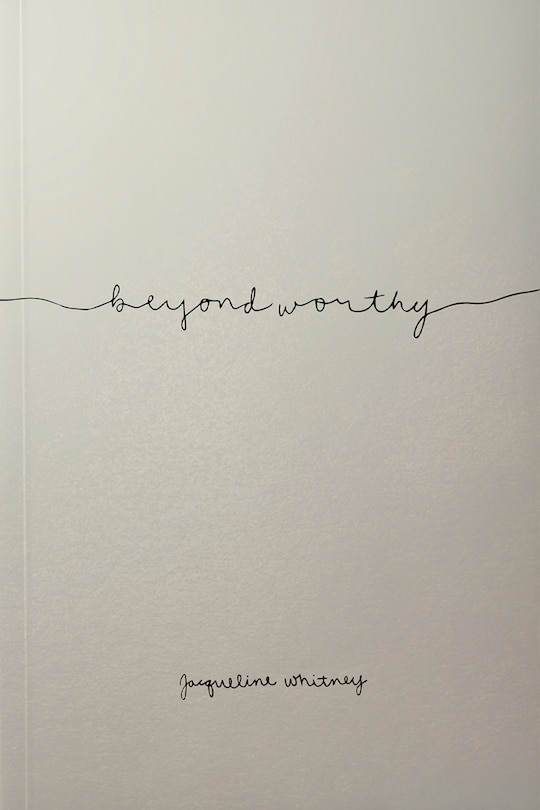 beyond worthy
jacqueline whitney